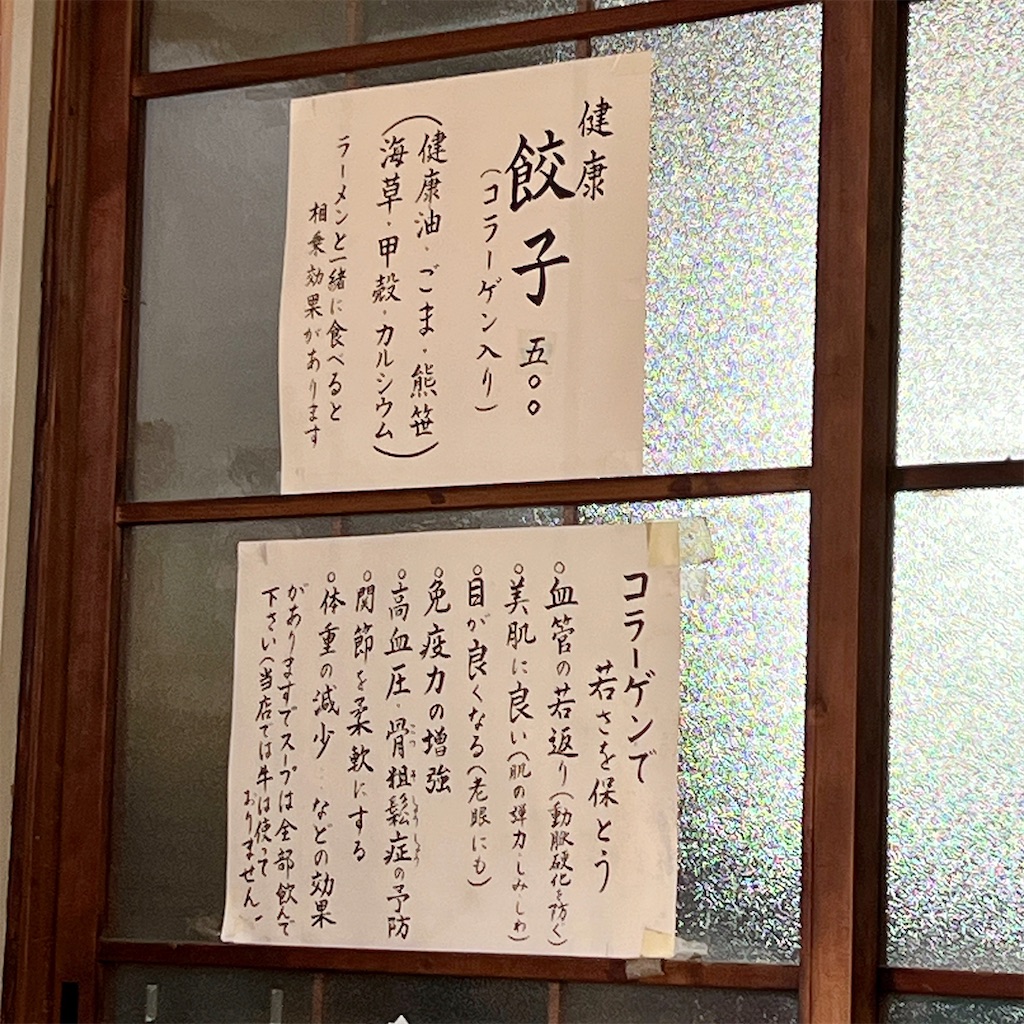 健康
餃子 五〇〇
(コラーゲン入り)
(健康油・ごま・熊笹
海草・甲殻・カルシウム)
ラーメンと一緒に食べると
相乗効果があります
コラーゲンで
若さを保とう
○血管の若返り(動脈硬化を防ぐ)
○美肌に良い(肌の弾力・しみ・しわ)
○目が良くなる(老眼にも)
○免疫力の増強
○高血圧・骨粗鬆症の予防
こつ そ しょうしょう
○関節を柔軟にする
○体重の減少……などの効果
がありますでスープは全部飲んで
下さい(当店では牛は使って
おりません)